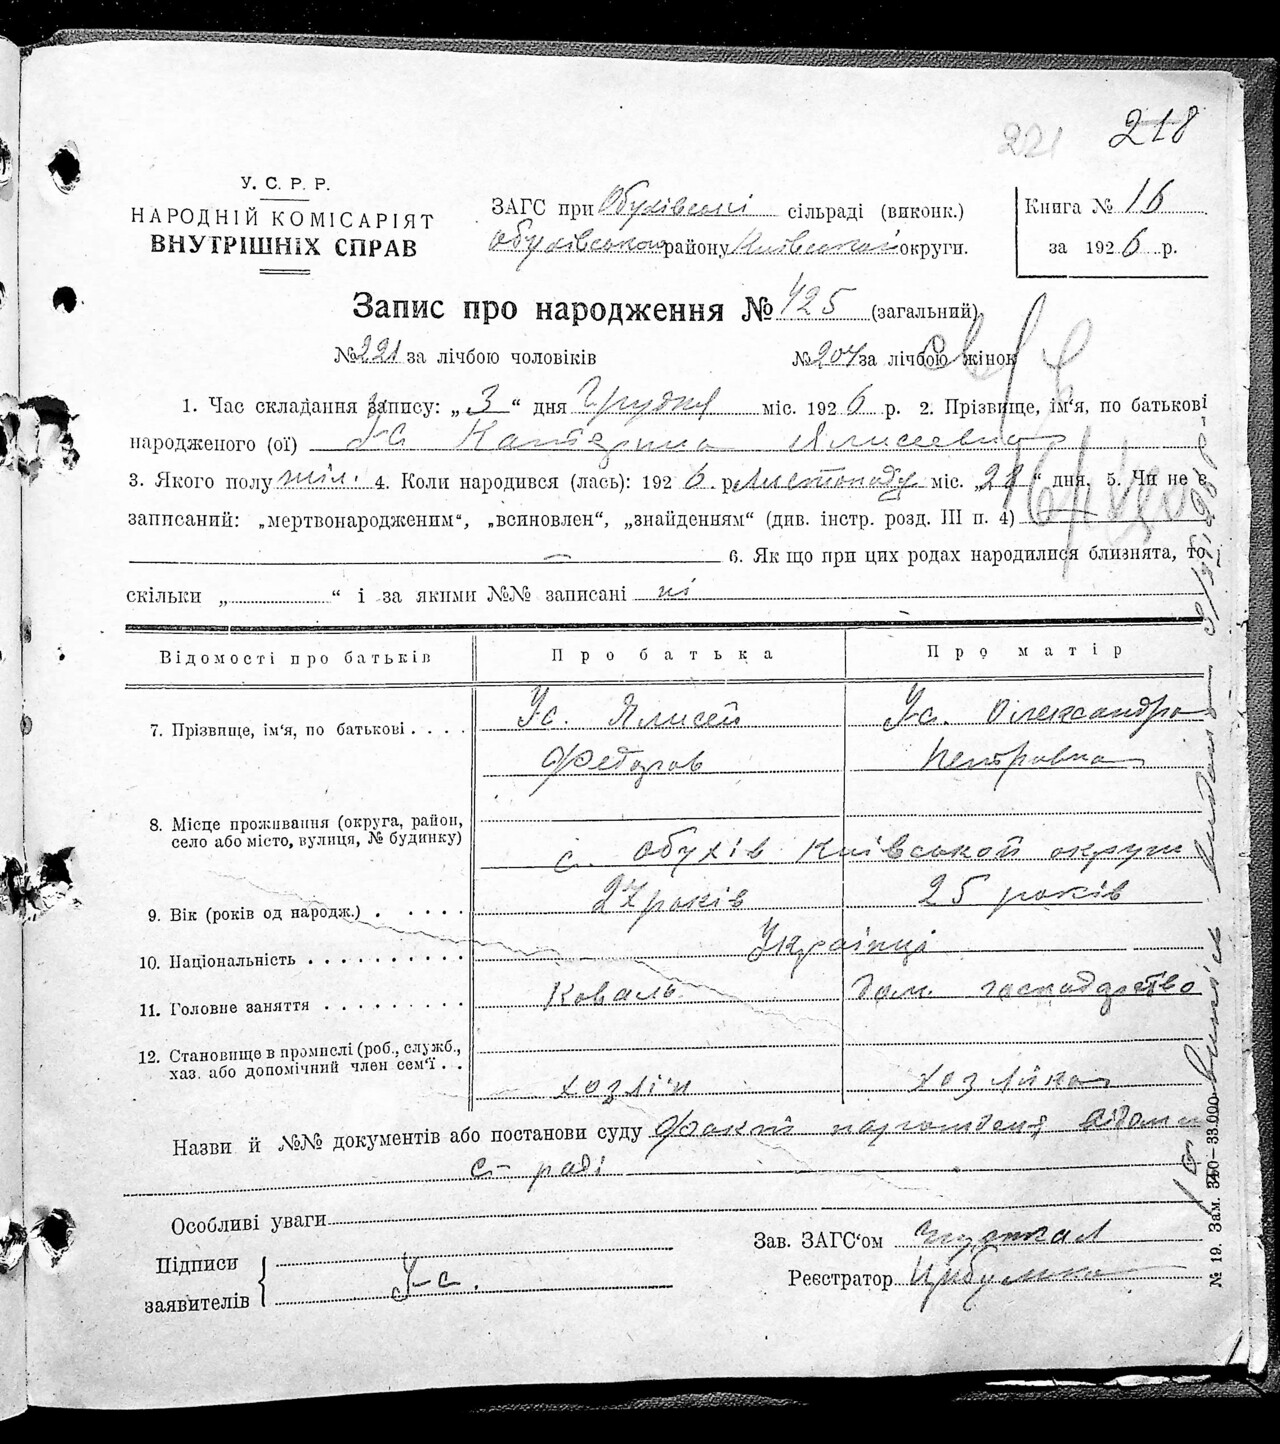 221 218
У. С. Р. Р.
НАРОДНІЙ КОМІСАРІЯТ
ВНУТРІШНІХ СПРАВ
ЗАГС при Обухівські сільраді (виконк.)
Обухівського району Київської округи.
Книга № 16
за 1926 р.
Запис про народження № 425 (загальний)
№ 221 за лічбою чоловіків № 204 за лічбою жінок
1. Час складання запису: „ 3 “ дня Грудня міс. 1926 р. 2. Прізвище, ім'я, по батькові
народженого (ої) Ус Катерина Ялисеевна
3. Якого полу жін. 4. Коли народився (лась): 1926 р. Листопаду міс. „28“ дня. 5. Чи не є
записаний: „мертвонародженим“, „всиновлен“, „знайденням“ (див. інстр. розд. III п. 4)
— 6. Як що при цих родах народилися близнята, то
скільки „ “ і за якими №№ записані ні
Відомості про батьків Про батька Про матір
7. Прізвище, ім'я, по батькові . . . . Ус. Ялисей Ус. Олександра
Федоров Петровна
8. Місце проживання (округа, район,
село або місто, вулиця, № будинку)
с. Обухів Київської округи
9. Вік (років од народж.) . . . . . 27 років 25 років
10. Національність . . . . . . . . . . Українці
11. Головне заняття . . . . . . . . . Коваль Дом. господарство
12. Становище в промислі (роб., служб.,
хаз. або допомічний член сем'ї . .
хозяїн хозяйка
Назви й №№ документів або постанови суду Факт народження відомий
с-раді
Особливі уваги
Підписи
заявителів Ус.
Зав. ЗАГС'ом
Реєстратор Цибулька
№ 19. Зам. 340—33.000